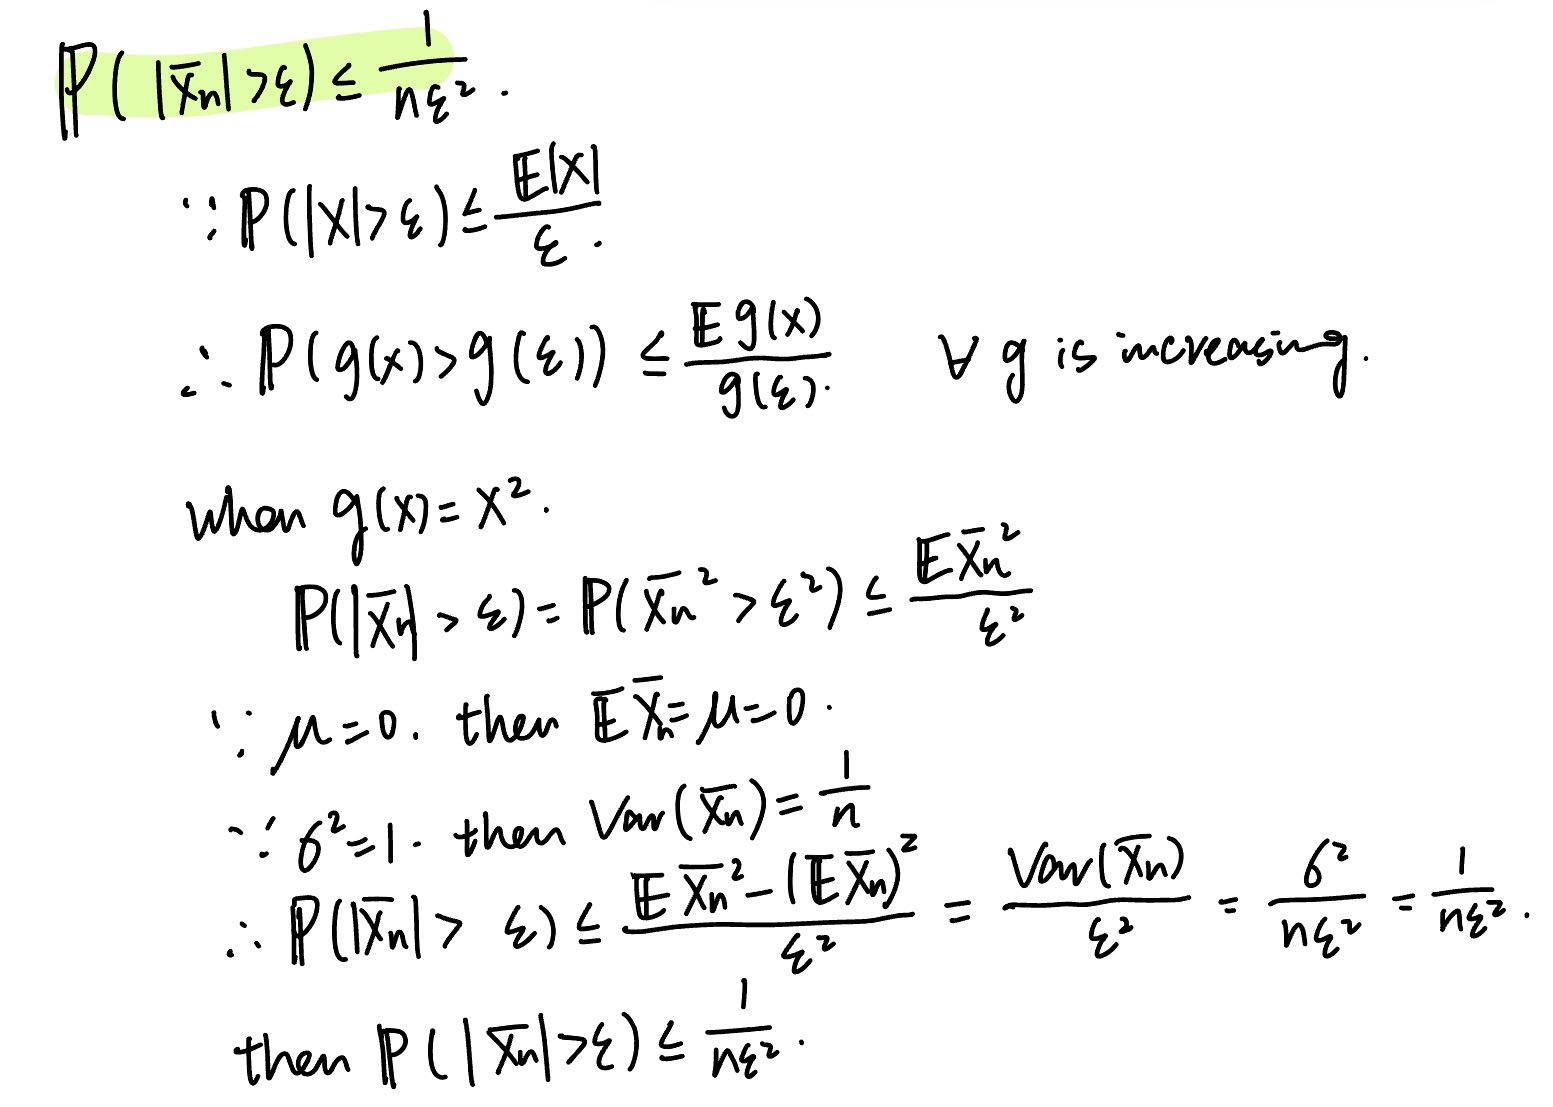 ℙ(|X̄n|>ε) ≤ 1/(nε²).
∵ ℙ(|X|>ε) ≤ 𝔼|X|/ε.
∴ ℙ(g(x)>g(ε)) ≤ 𝔼g(x)/g(ε). ∀ g is increasing.
when g(x)=x².
ℙ(|X̄n|>ε)=ℙ(X̄n²>ε²) ≤ 𝔼X̄n²/ε²
∵ μ=0. then 𝔼X̄n=μ=0.
∵ σ²=1. then Var(X̄n)=1/n
∴ ℙ(|X̄n|> ε) ≤ (𝔼X̄n²-(𝔼X̄n)²)/ε² = Var(X̄n)/ε² = σ²/(nε²) = 1/(nε²).
then ℙ(|X̄n|>ε) ≤ 1/(nε²).